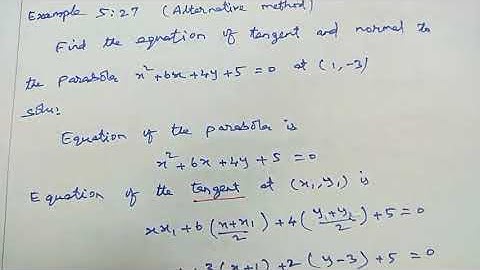 Example 5.27 (Alternative method)
Find the equation of tangent and normal to
the parabola x²+6x+4y+5=0 at (1,-3)
Soln:
Equation of the parabola is
x²+6x+4y+5=0
Equation of the tangent at (x₁,y₁) is
xx₁+6(x+x₁/2)+4(y₁+y₂/2)+5=0
3(x+1)+2(y-3)+5=0